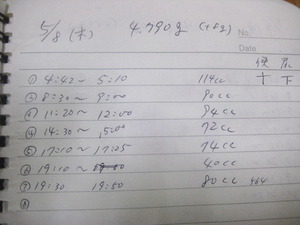 5/8 (木) 4.790g (+8g) No.
Date
便 尿
① 4:42～ 5:10 114cc 十 下
② 8:30～ 9:00 90cc
③ 11:20～ 12:00 94cc
④ 14:30～ 15:00 72cc
⑤ 17:10～ 17:25 74cc
⑥ 19:10～ 40cc
⑦ 19:30 19:50 80cc 564
⑧